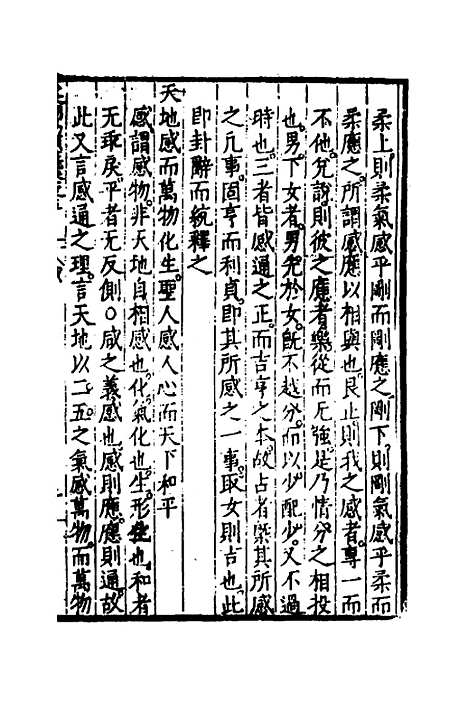 柔上則柔氣感乎剛而剛應之剛下則剛氣感乎柔而
柔應之所謂感應以相與也艮止則我之感者專一而
不他兌說則彼之應者樂從而无強是乃情分之相投
也男下女者男先於女既不越分而以少配少又不過
時也三者皆感通之正而吉亨之本故占者槩其所感
之凢事固亨而利貞即其所感之一事取女則吉也此
即卦辭而統釋之
天地感而萬物化生聖人感人心而天下和平
感謂感物非天地自相感也化氣化也生形生也和者
无乖戾平者无反側○咸之義感也感則應應則通故
此又言感通之理言天地以二五之氣感萬物而萬物